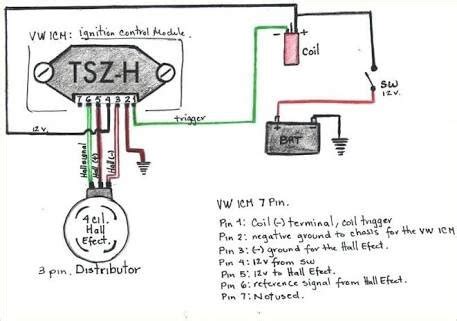 VW ICM: ignition control Module.
TSZ-H
7 6 5 4 3 2 1
- +
Coil
trigger
SW
12v.
12v.
Hall signal
Hall (+)
Hall (-)
- +
BAT
4 cil.
Hall
Efect.
3 pin. Distributor
VW ICM 7 Pin.
Pin 1: Coil (-) terminal, coil trigger
Pin 2: negative ground to chassis for the VW ICM
Pin 3: (-) ground for the Hall Efect.
Pin 4: 12v from SW
Pin 5: 12v to Hall Efect.
Pin 6: reference signal from Hall Efect.
Pin 7: Not used.